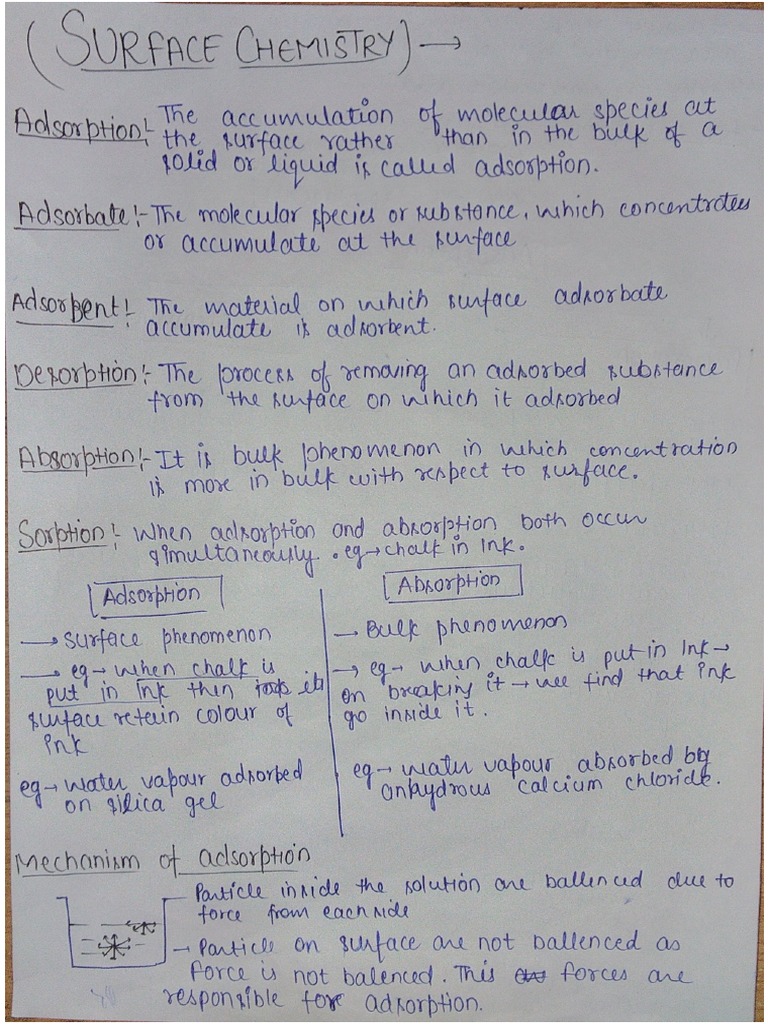 (SURFACE CHEMISTRY) →
Adsorption:- The accumulation of molecular species at
the surface rather than in the bulk of a
solid or liquid is called adsorption.
Adsorbate:- The molecular species or substance, which concentrates
or accumulate at the surface
Adsorbent:- The material on which surface adsorbate
accumulate is adsorbent.
Desorption:- The process of removing an adsorbed substance
from the surface on which it adsorbed
Absorption:- It is bulk phenomenon in which concentration
is more in bulk with respect to surface.
Sorption:- When adsorption and absorption both occur
simultaneously. eg→ chalk in ink.
Adsorption
→ surface phenomenon
→ eg → when chalk is
put in ink then its
surface retain colour of
ink
eg→ water vapour adsorbed
on silica gel
Absorption
→ Bulk phenomenon
→ eg → when chalk is put in Ink →
on breaking it → we find that ink
go inside it.
eg→ water vapour absorbed by
anhydrous calcium chloride.
Mechanism of adsorption
Particle inside the solution are ballenced due to
force from each side
→ Particle on surface are not ballenced as
force is not balenced. This forces are
responsible for adsorption.